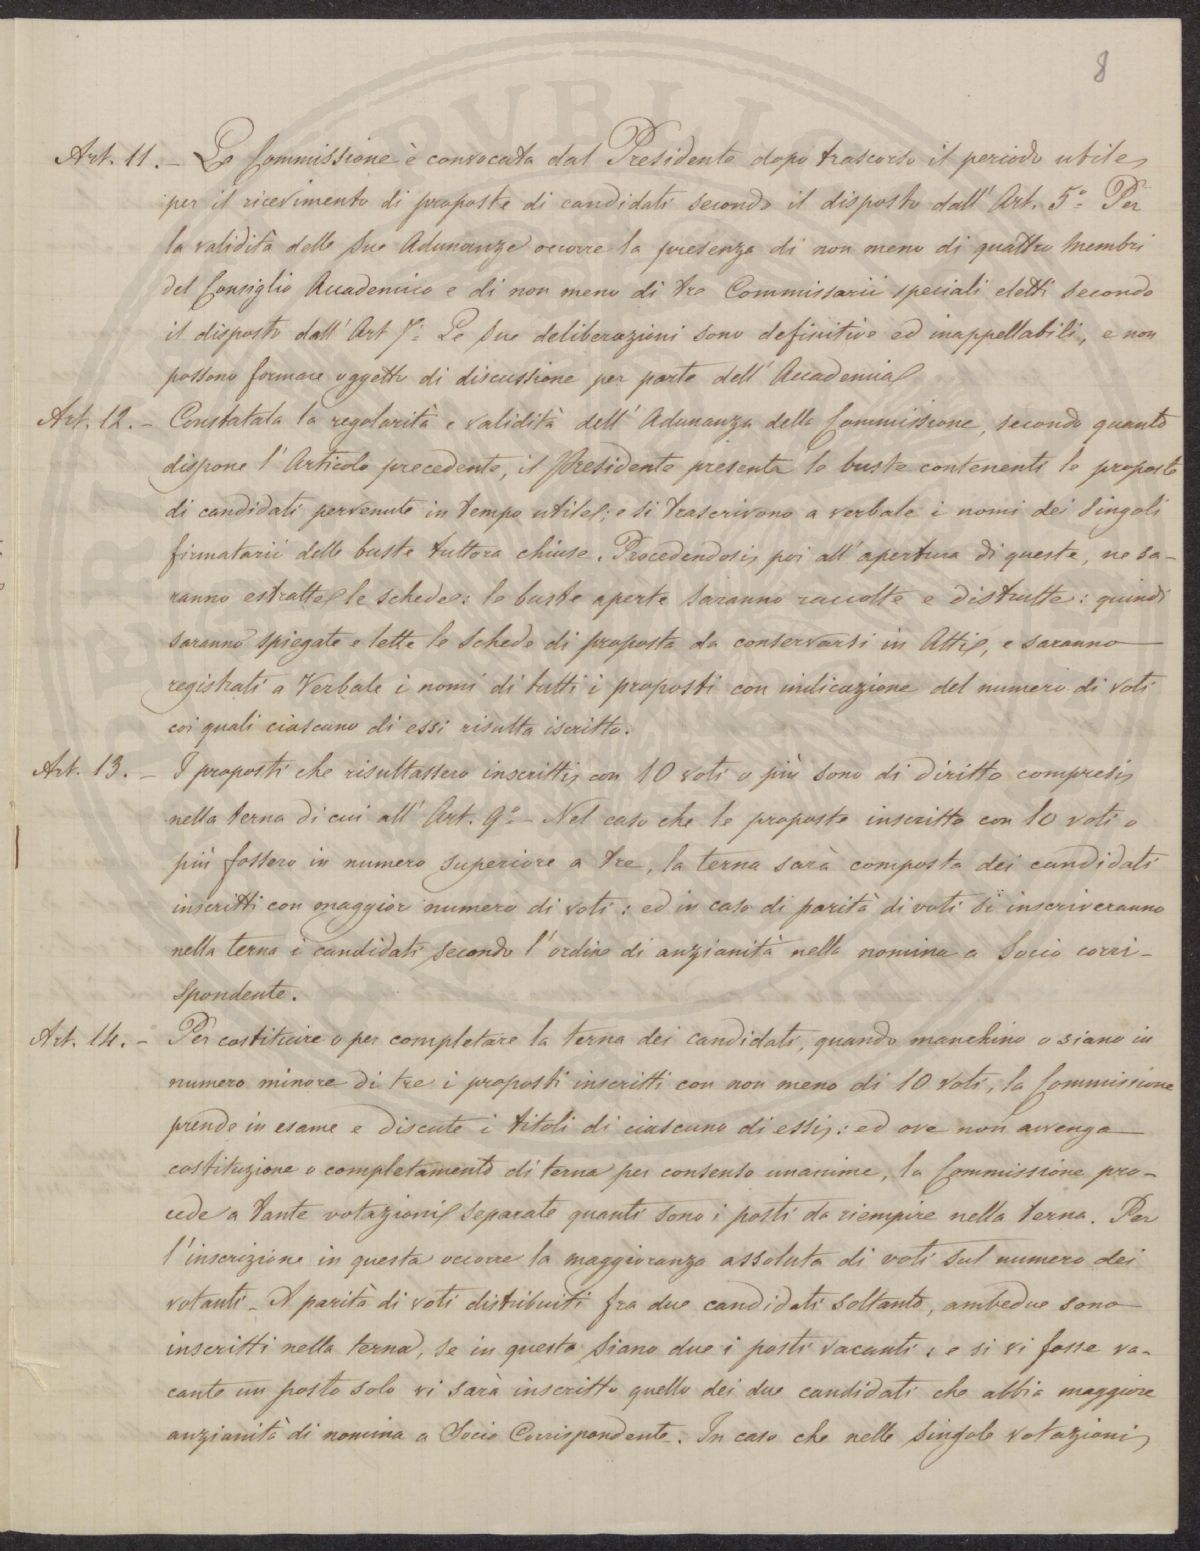 8
Art. 11. – La Commissione è convocata dal Presidente dopo trascorso il periodo utile
per il ricevimento di proposte di candidati secondo il disposto dall' Art. 5.° Per
la validità delle sue Adunanze occorre la presenza di non meno di quattro Membri
del Consiglio Accademico e di non meno di tre Commissarii speciali eletti secondo
il disposto dall' Art 7.° Le sue deliberazioni sono definitive ed inappellabili, e non
possono formare oggetto di discussione per parte dell' Accademia
Art. 12. – Constatata la regolarità e validità dell' Adunanza della Commissione, secondo quanto
dispone l' Articolo precedente, il Presidente presenta le buste contenenti le proposte
di candidati pervenute in tempo utile; e si trascrivono a verbale i nomi dei singoli
firmatarii delle buste tuttora chiuse. Procedendosi poi all' apertura di queste, ne sa-
ranno estratte le schede: le buste aperte saranno raccolte e distrutte: quindi
saranno spiegate e lette le schede di proposta da conservarsi in Atti, e saranno
registrati a Verbale i nomi di tutti i proposti con indicazione del numero di voti
coi quali ciascuno di essi risulta iscritto.
Art. 13. – I proposti che risultassero inscritti con 10 voti o più sono di diritto compresi
nella terna di cui all' Art. 9.° – Nel caso che le proposte inscritte con 10 voti o
più fossero in numero superiore a tre, la terna sarà composta dei candidati
inscritti con maggior numero di voti: ed in caso di parità di voti si inscriveranno
nella terna i candidati secondo l' ordine di anzianità nella nomina a Socio corri-
spondente.
Art. 14. – Per costituire o per completare la terna dei candidati, quando manchino o siano in
numero minore di tre i proposti inscritti con non meno di 10 voti, la Commissione
prende in esame e discute i titoli di ciascuno di essi: ed ove non avvenga
costituzione o completamento di terna per consenso unanime, la Commissione pro-
cede a tante votazioni separate quanti sono i posti da riempire nella terna. Per
l' inscrizione in questa occorre la maggioranza assoluta di voti sul numero dei
votanti – A parità di voti distribuiti fra due candidati soltanto, ambedue sono
inscritti nella terna, se in questa siano due i posti vacanti: e si vi fosse va-
cante un posto solo vi sarà inscritto quello dei due candidati che abbia maggiore
anzianità di nomina a Socio Corrispondente. In caso che nelle singole votazioni